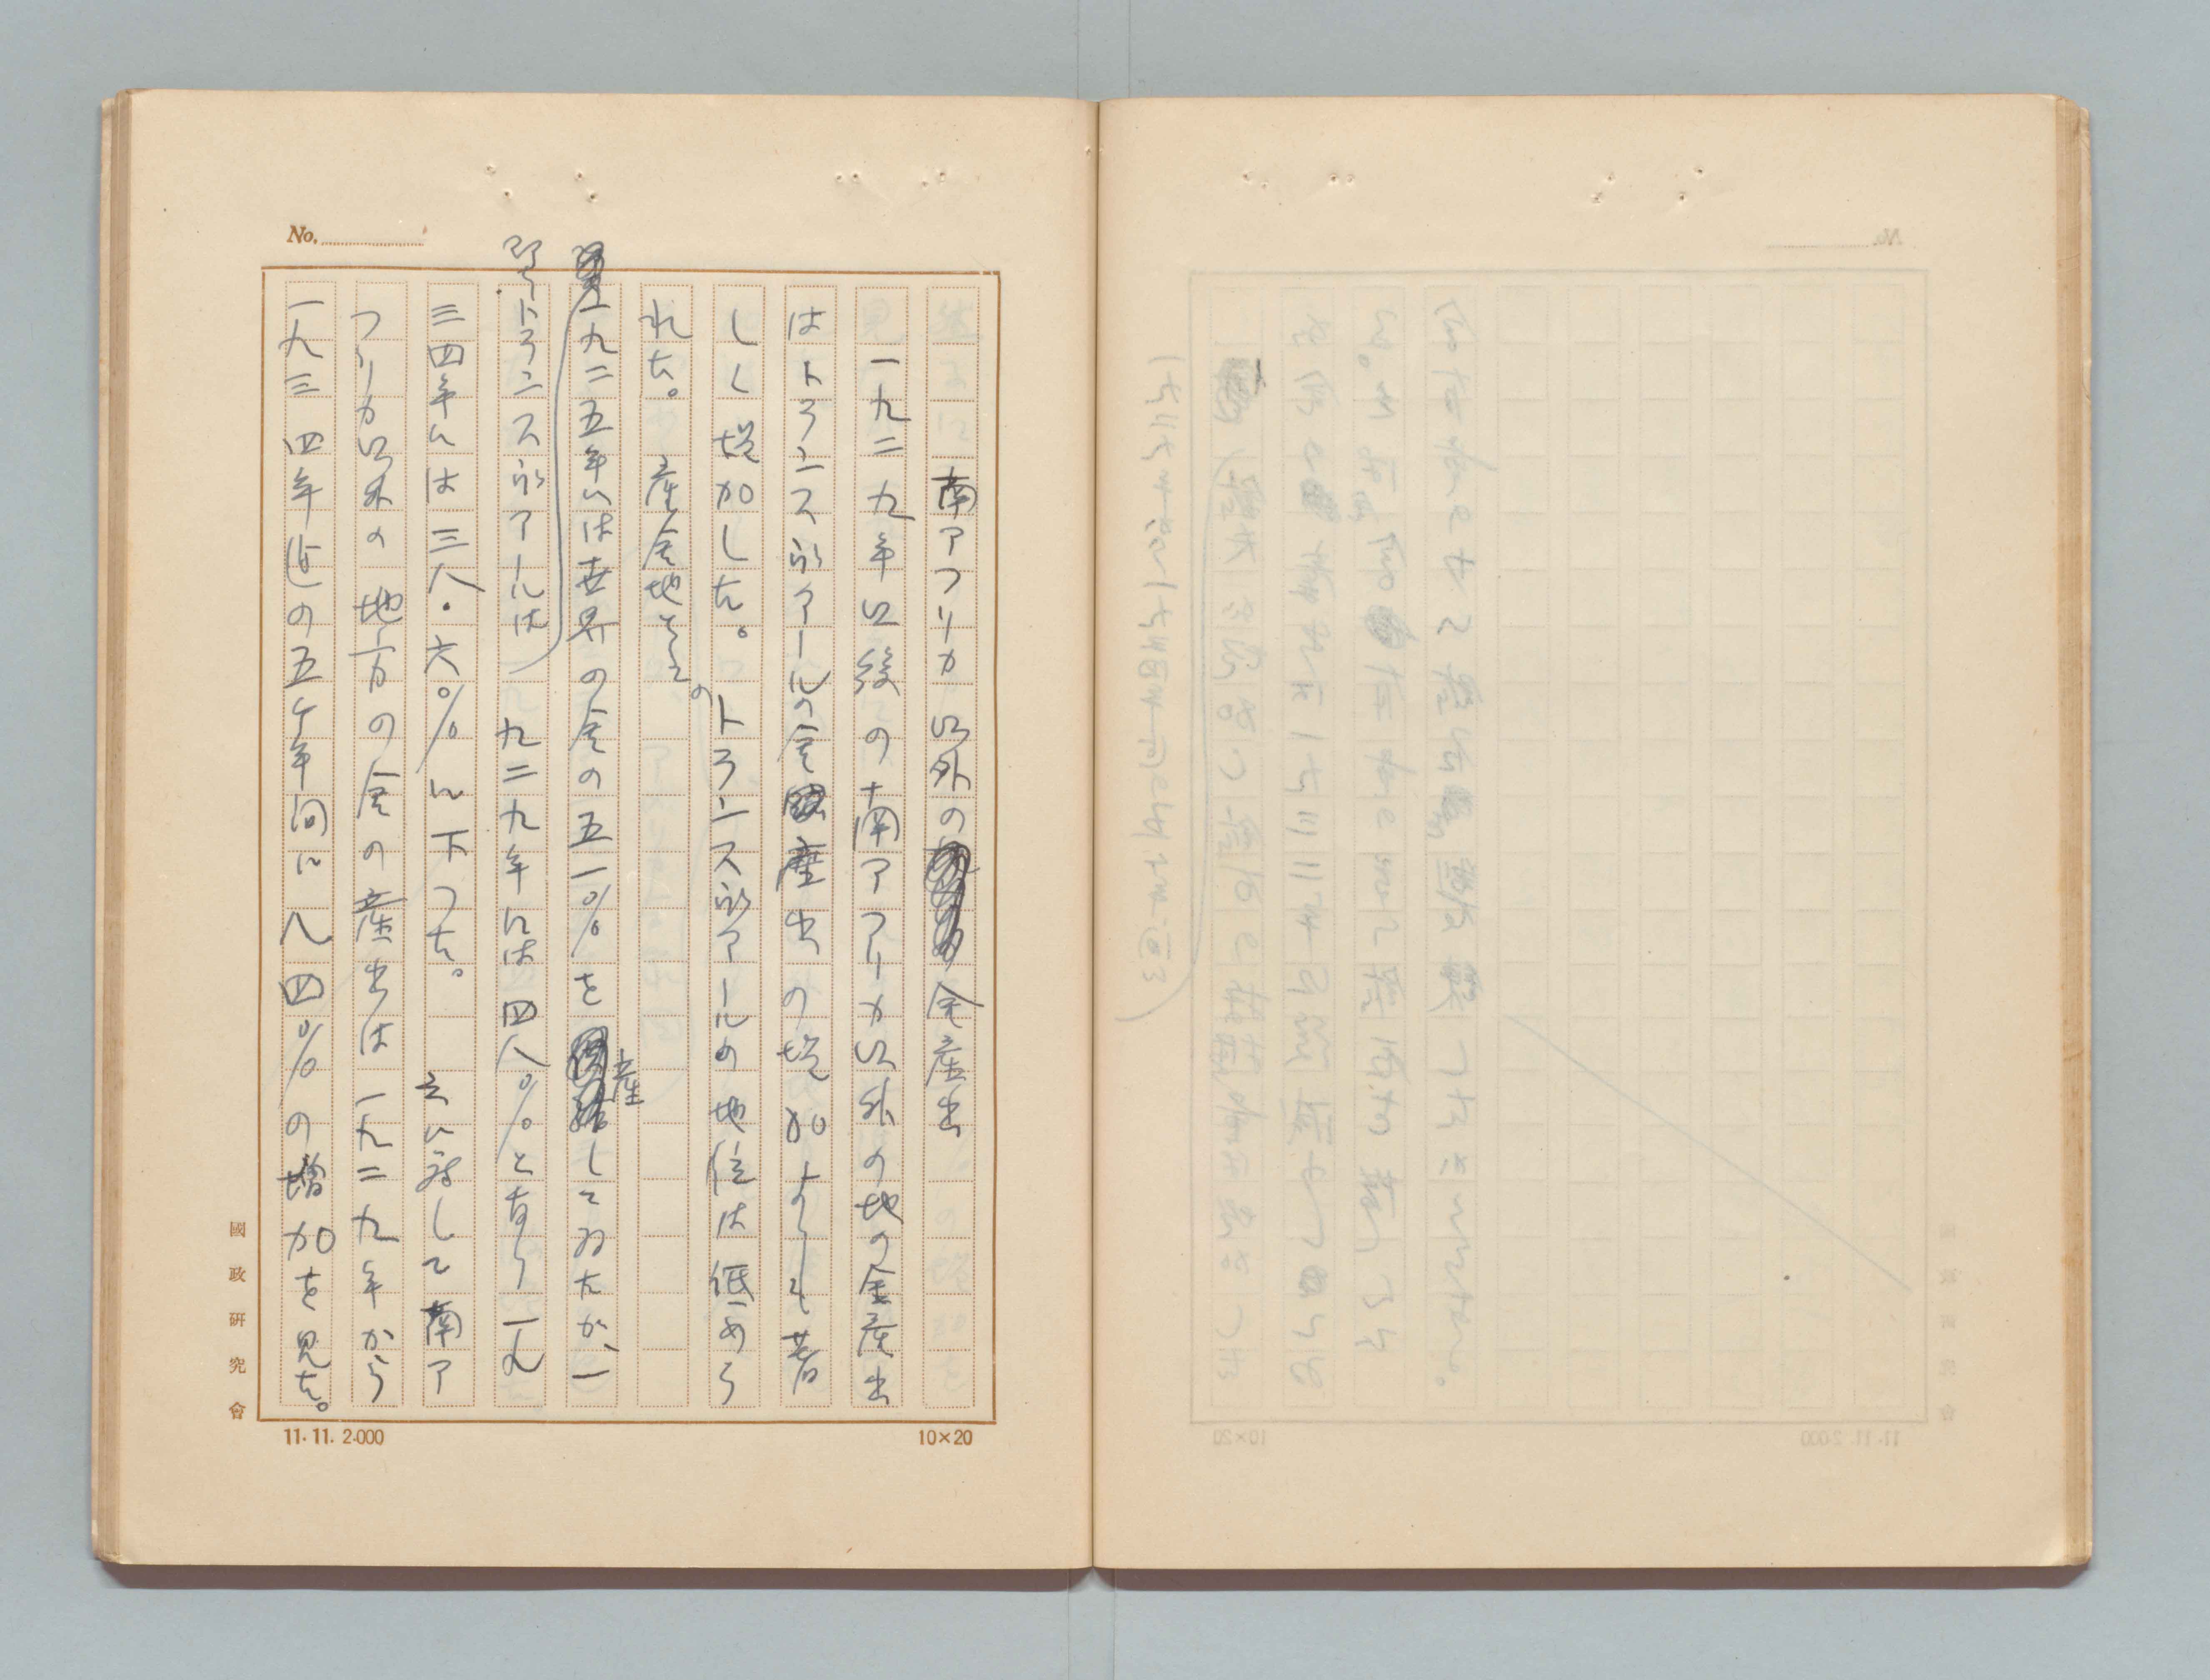 No.
南アフリカ以外の金産出
一九二九年以後の南アフリカ以外の地の金産出
はトランスヴァールの金産出の増加よりも著
しく増加した。トランスヴァールの地位は低めら
れた。産金地としての
一九二五年には世界の金の五一%を産してゐたが、一
トランスヴァールは
九二九年には四八%となり一九
三四年には三八・六%に下つた。之に対して南ア
フリカ以外の地方の金の産出は一九二九年から
一九三四年迄の五ケ年間に八四%の増加を見た。
國政研究會
11.11.2.000
10×20